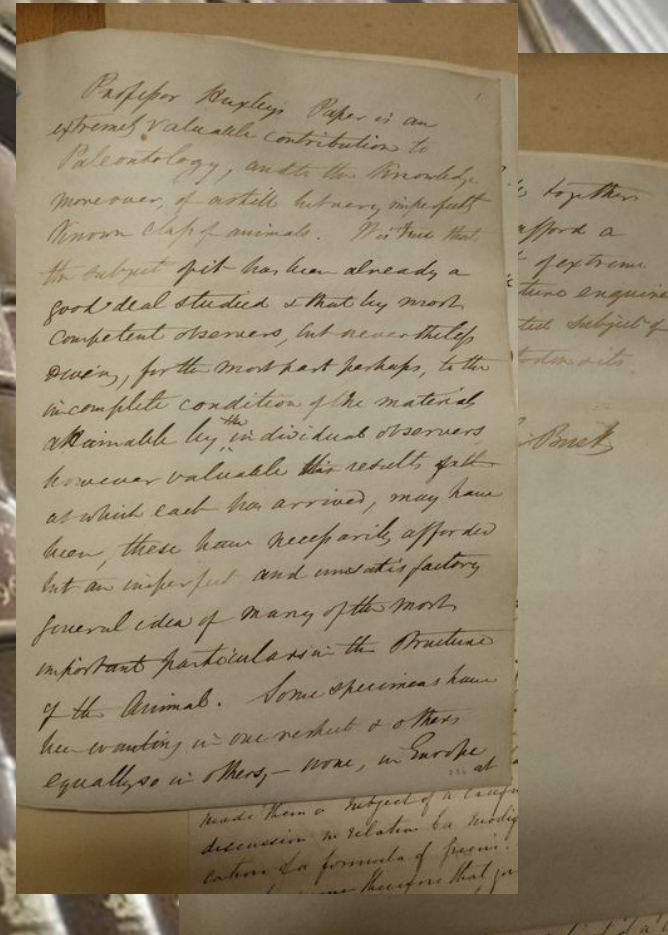 Professor Huxley's Paper is an
extremely valuable contribution to
Paleontology, and to the Knowledge
moreover, of a still but very imperfectly
Known class of animals. It is true that
the subject of it has been already a
good deal studied & that by most
competent observers, but nevertheless
owing, for the most part perhaps, to the
incomplete condition of the materials
attainable by the individual observers
however valuable the results
at which each has arrived, may have
been, these have necessarily afforded
but an imperfect and unsatisfactory
general idea of many of the most
important particulars in the Structure
of the Animal. Some specimens have
been wanting in one respect & others
equally so in others,— none, in Europe
at
together
afford a
of extreme
enquire
subject of
Busk
made them a subject of a
discussion in relation to a modifi
cation of a formula of
therefore that